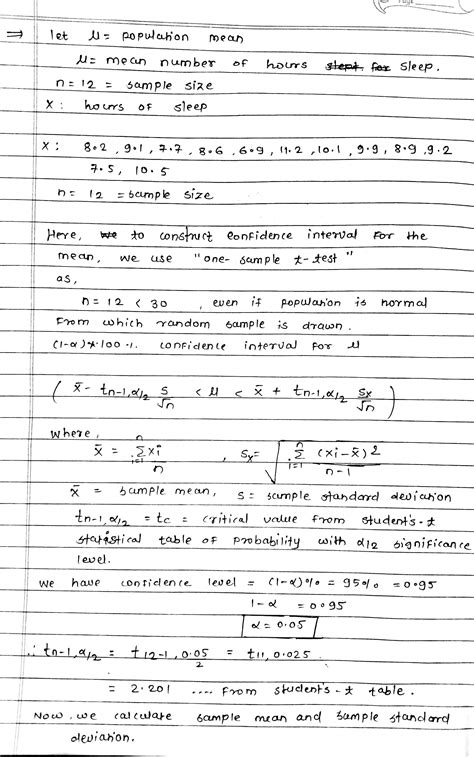 ⇒ let μ = population mean
μ = mean number of hours slept for sleep.
n = 12 = sample size
X : hours of sleep
X : 8.2, 9.1, 7.7, 8.6, 6.9, 11.2, 10.1, 9.9, 8.9, 9.2
7.5, 10.5
n = 12 = sample size
Here, we to construct confidence interval For the
mean, we use "one-sample t-test"
as,
n = 12 < 30 , even if population is normal
From which random sample is drawn.
(1-α)*100 % confidence interval For μ
( x̄ - tn-1,α/2 s/√n < μ < x̄ + tn-1,α/2 Sx/√n )
where,
x̄ = Σ(i=1 to n) xi / n , Sx = √( Σ(i=1 to n) (xi - x̄)2 / n-1 )
x̄ = sample mean, s = sample standard deviation
tn-1,α/2 = tc = critical value From student's-t
statistical table of probability with α/2 significance
level.
we have confidence level = (1-α)% = 95% = 0.95
1-α = 0.95
α = 0.05
∴ tn-1,α/2 = t12-1, 0.05/2 = t11, 0.025
= 2.201 .... From student's-t table.
Now, we calculate sample mean and sample standard
deviation.